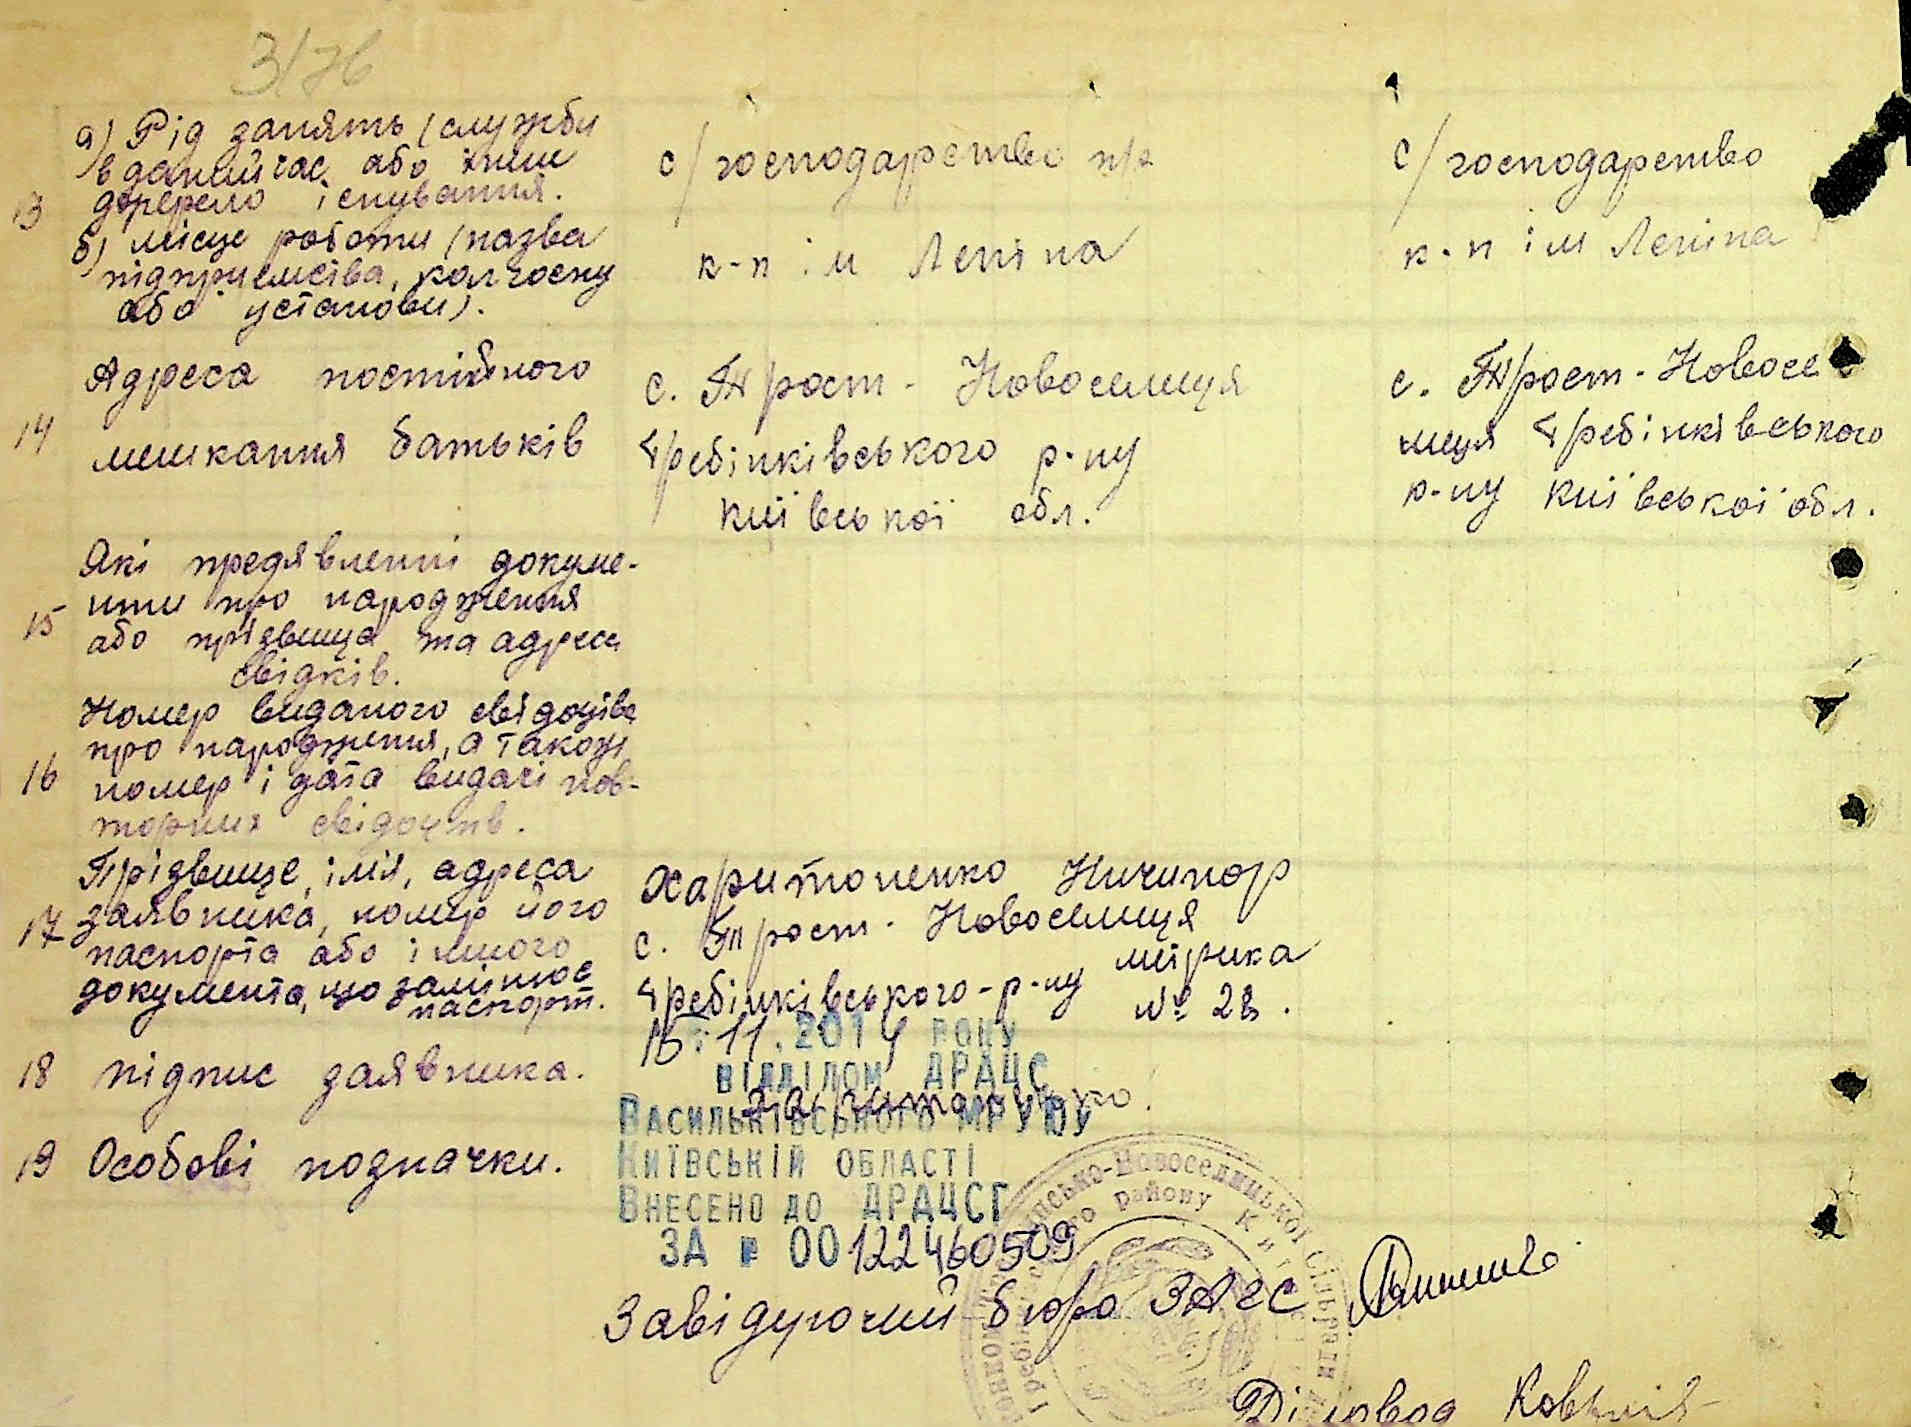 3/76
а) Рід занять (служби с/господарство с/господарство
в даний час або інше
13 джерело існування.
б) місце роботи (назва к-п ім Леніна к-п ім Леніна
підприємства, колгоспу
або установи).
Адреса постійного с. Трост - Новоселиця с. Трост - Новосе
14 мешкання батьків Гребінківського р-ну лиця Гребінківського
Київської обл. р-ну Київської обл.
Які предявленні докуме-
15 нти про народження
або прізвища та адреси
свідків.
Номер виданого свідоцтва
про народження, а також
16 номер і дата видачі пов-
торних свідоцтв.
Прізвище, імя, адреса Харитоненко Ничипор
17 заявника, номер його с. Трост - Новоселиця
паспорта або іншого метрика
документа, що замінює Гребінківського - р-ну № 28.
паспорт.
15.11.2014 року
18 підпис заявника. відділом ДРАЦС
Харитоненко.
Васильківського МРУЮ у
19 Особові позначки. Київській області
Внесено до ДРАЦСГ
за № 00122460509
Завідуючий бюро ЗАГС
Діловод